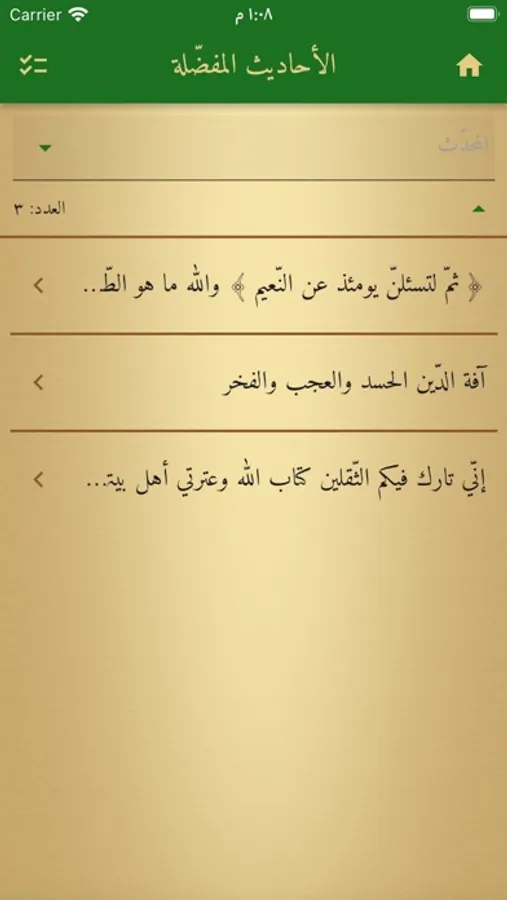 Carrier ١:٠٨ م
الأحاديث المفضّلة
المحدّث
العدد: ٣
﴿ ثمّ لتسئلنّ يومئذ عن النّعيم ﴾ والله ما هو الطّ..
آفة الدّين الحسد والعجب والفخر
إنّي تارك فيكم الثّقلين كتاب الله وعترتي أهل بيتـ...